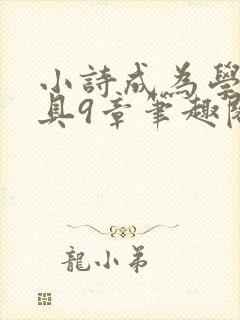 小詩成為學
具9章筆趣閱
龍小弟